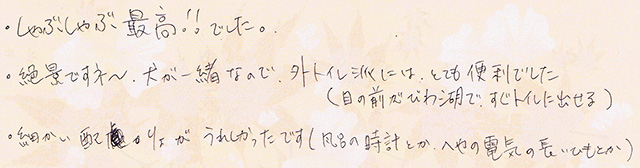 ・しゃぶしゃぶ最高!!でした。
・絶景ですネ〜、犬が一緒なので、外トイレ派には、とても便利でした
(目の前がびわ湖で、すぐトイレに出せる)
・細かい配かりょがうれしかったです(風呂の時計とか、へやの電気の長いひもとか)